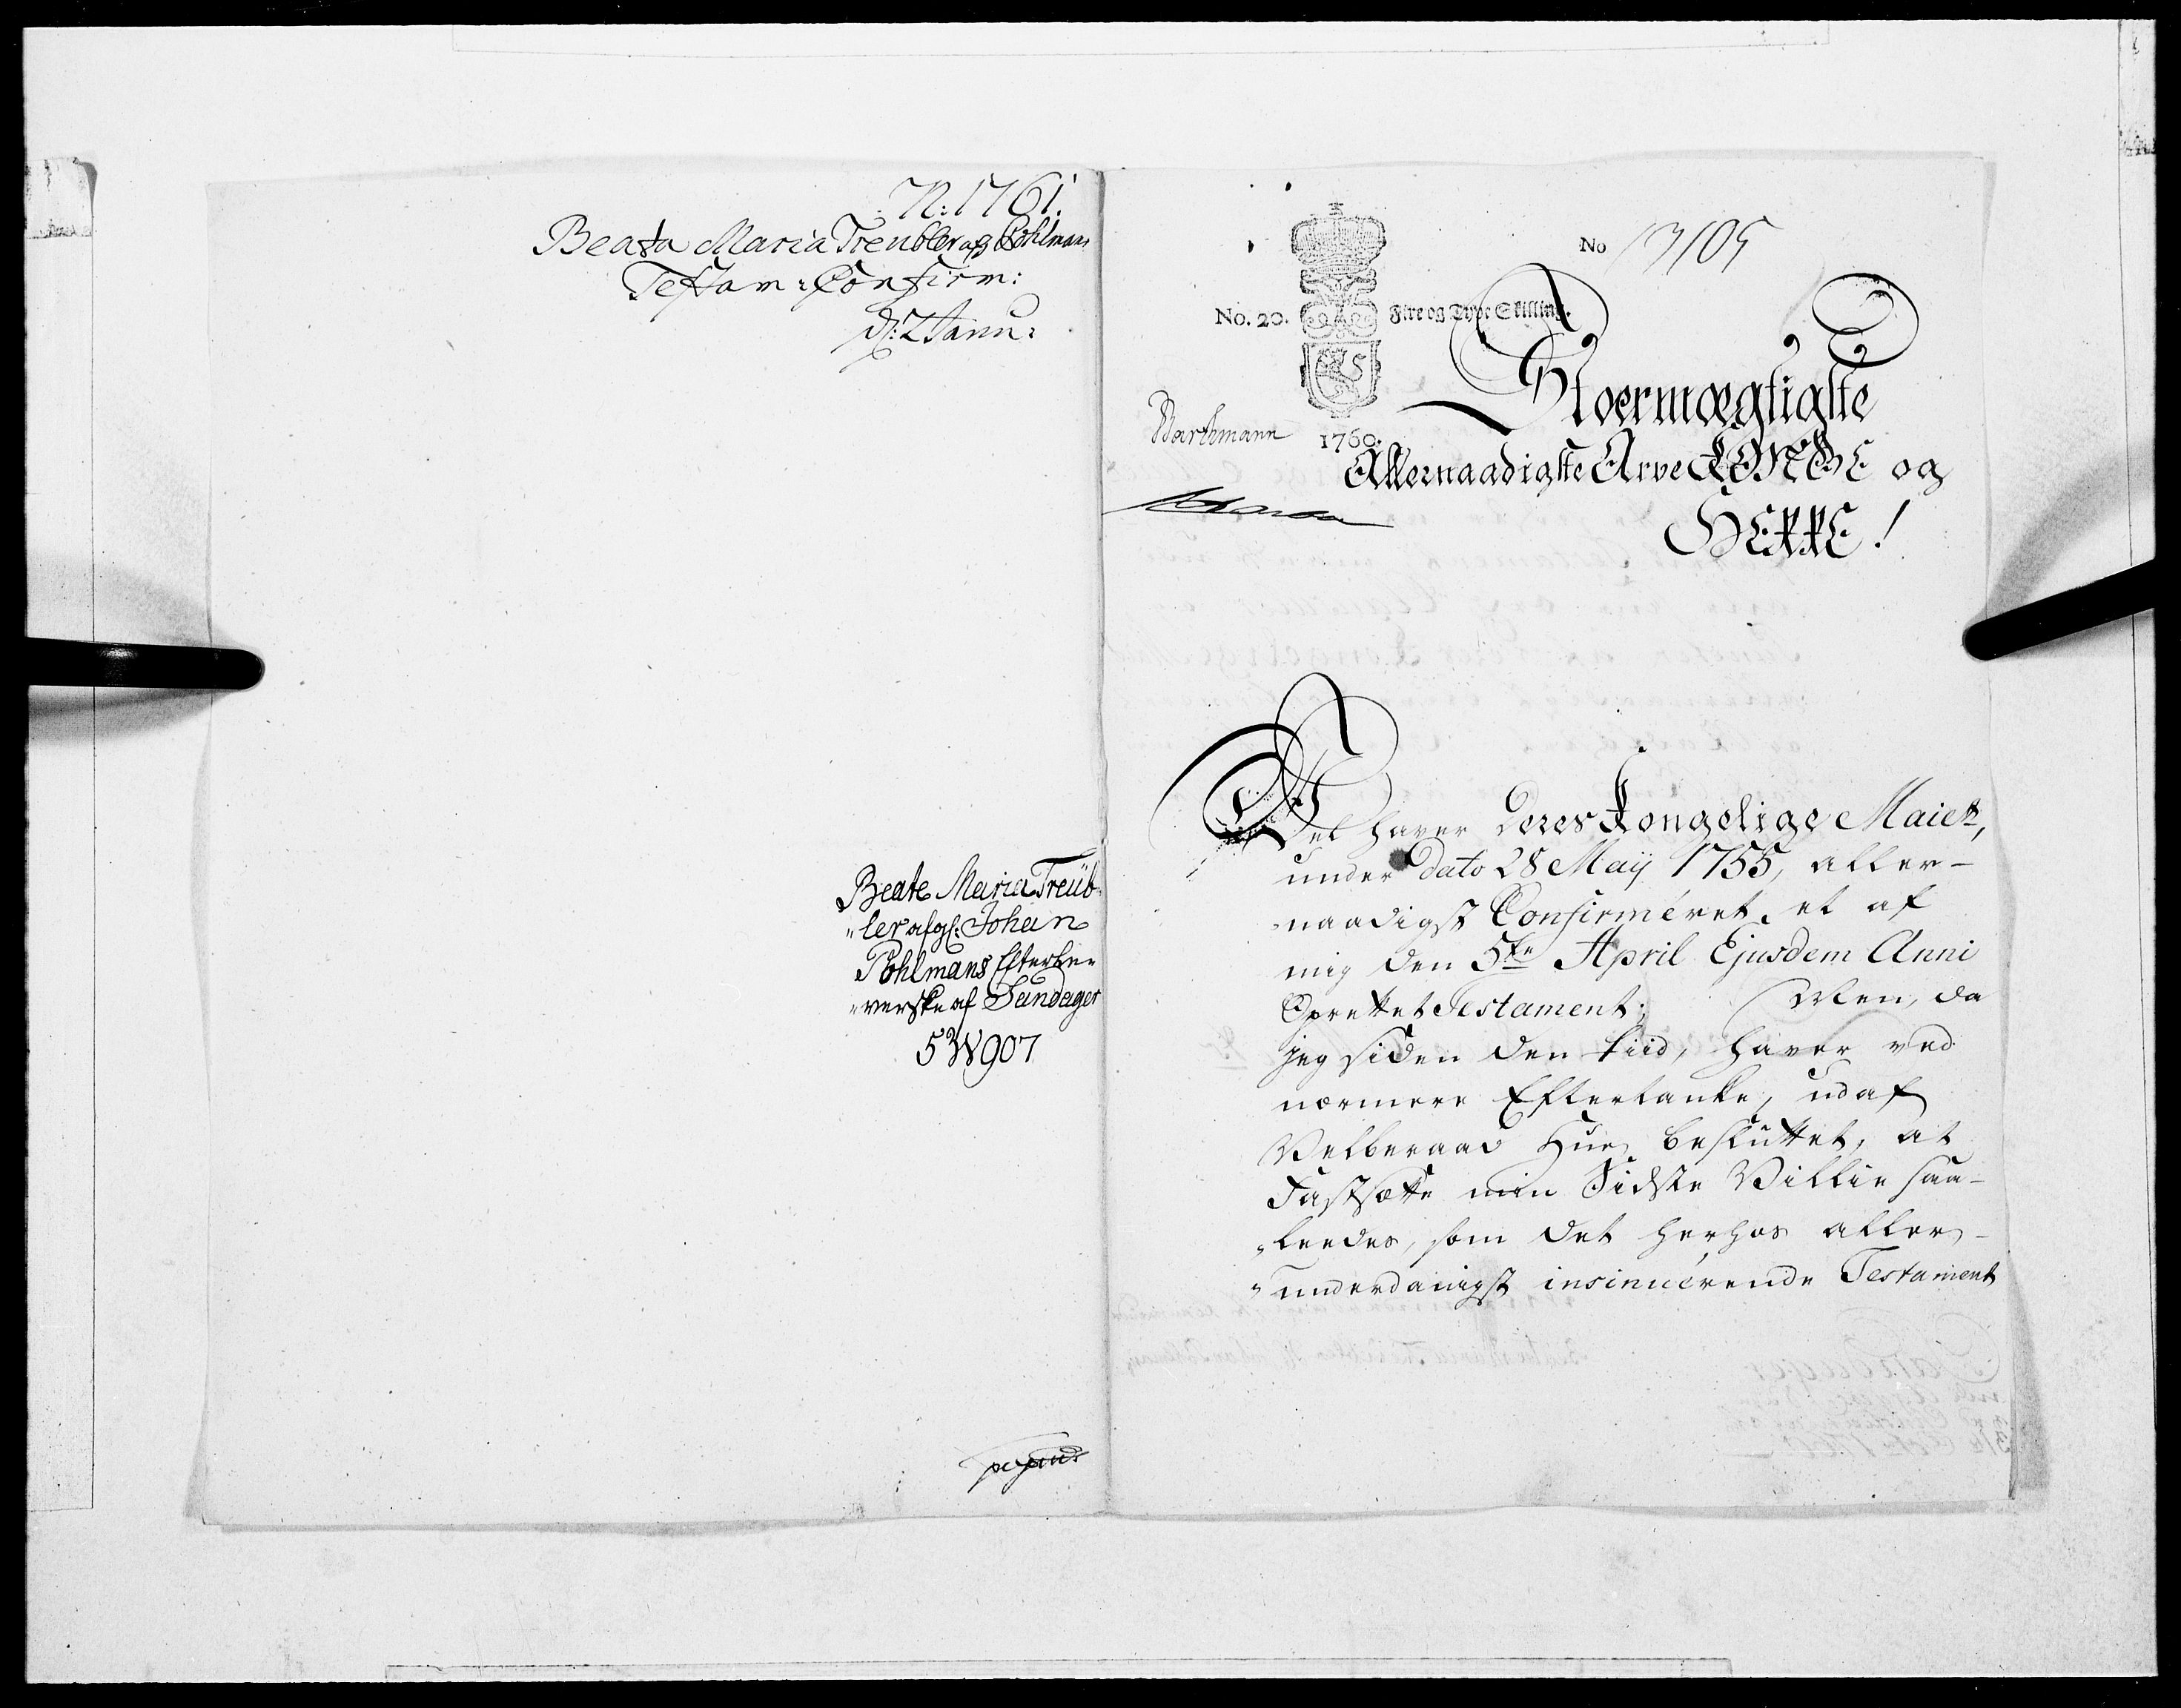 N: 1761.
Beata Maria Treubler afg Pohlmans
Testam: Confirm:
d: 2 Janu:
Beate Maria Treüb-
"ler afgl: Johan
Pohlmans Efterle-
"verske af Sundager
5 W 907
No 13105
No. 20. Fire og Tyve Skilling.
Stoermægtigste
Barthmann 1760.
Allernaadigste Arve KONGE og
HERRE!
Det haver Deres Kongelige Maiet,
under Dato 28 Maij 1755, aller-
naadigst Confirméret et af
mig den 5te April Ejusdem Anni
Oprettet Testament; Men, da
jeg siden den tiid, haver ved
nærmere Eftertanke, udaf
Velberaad Hue besluttet, at
Fastsætte min Sidste Villie saa-
"leedes, som det herhos aller-
"underdanigst insinuérende Testament